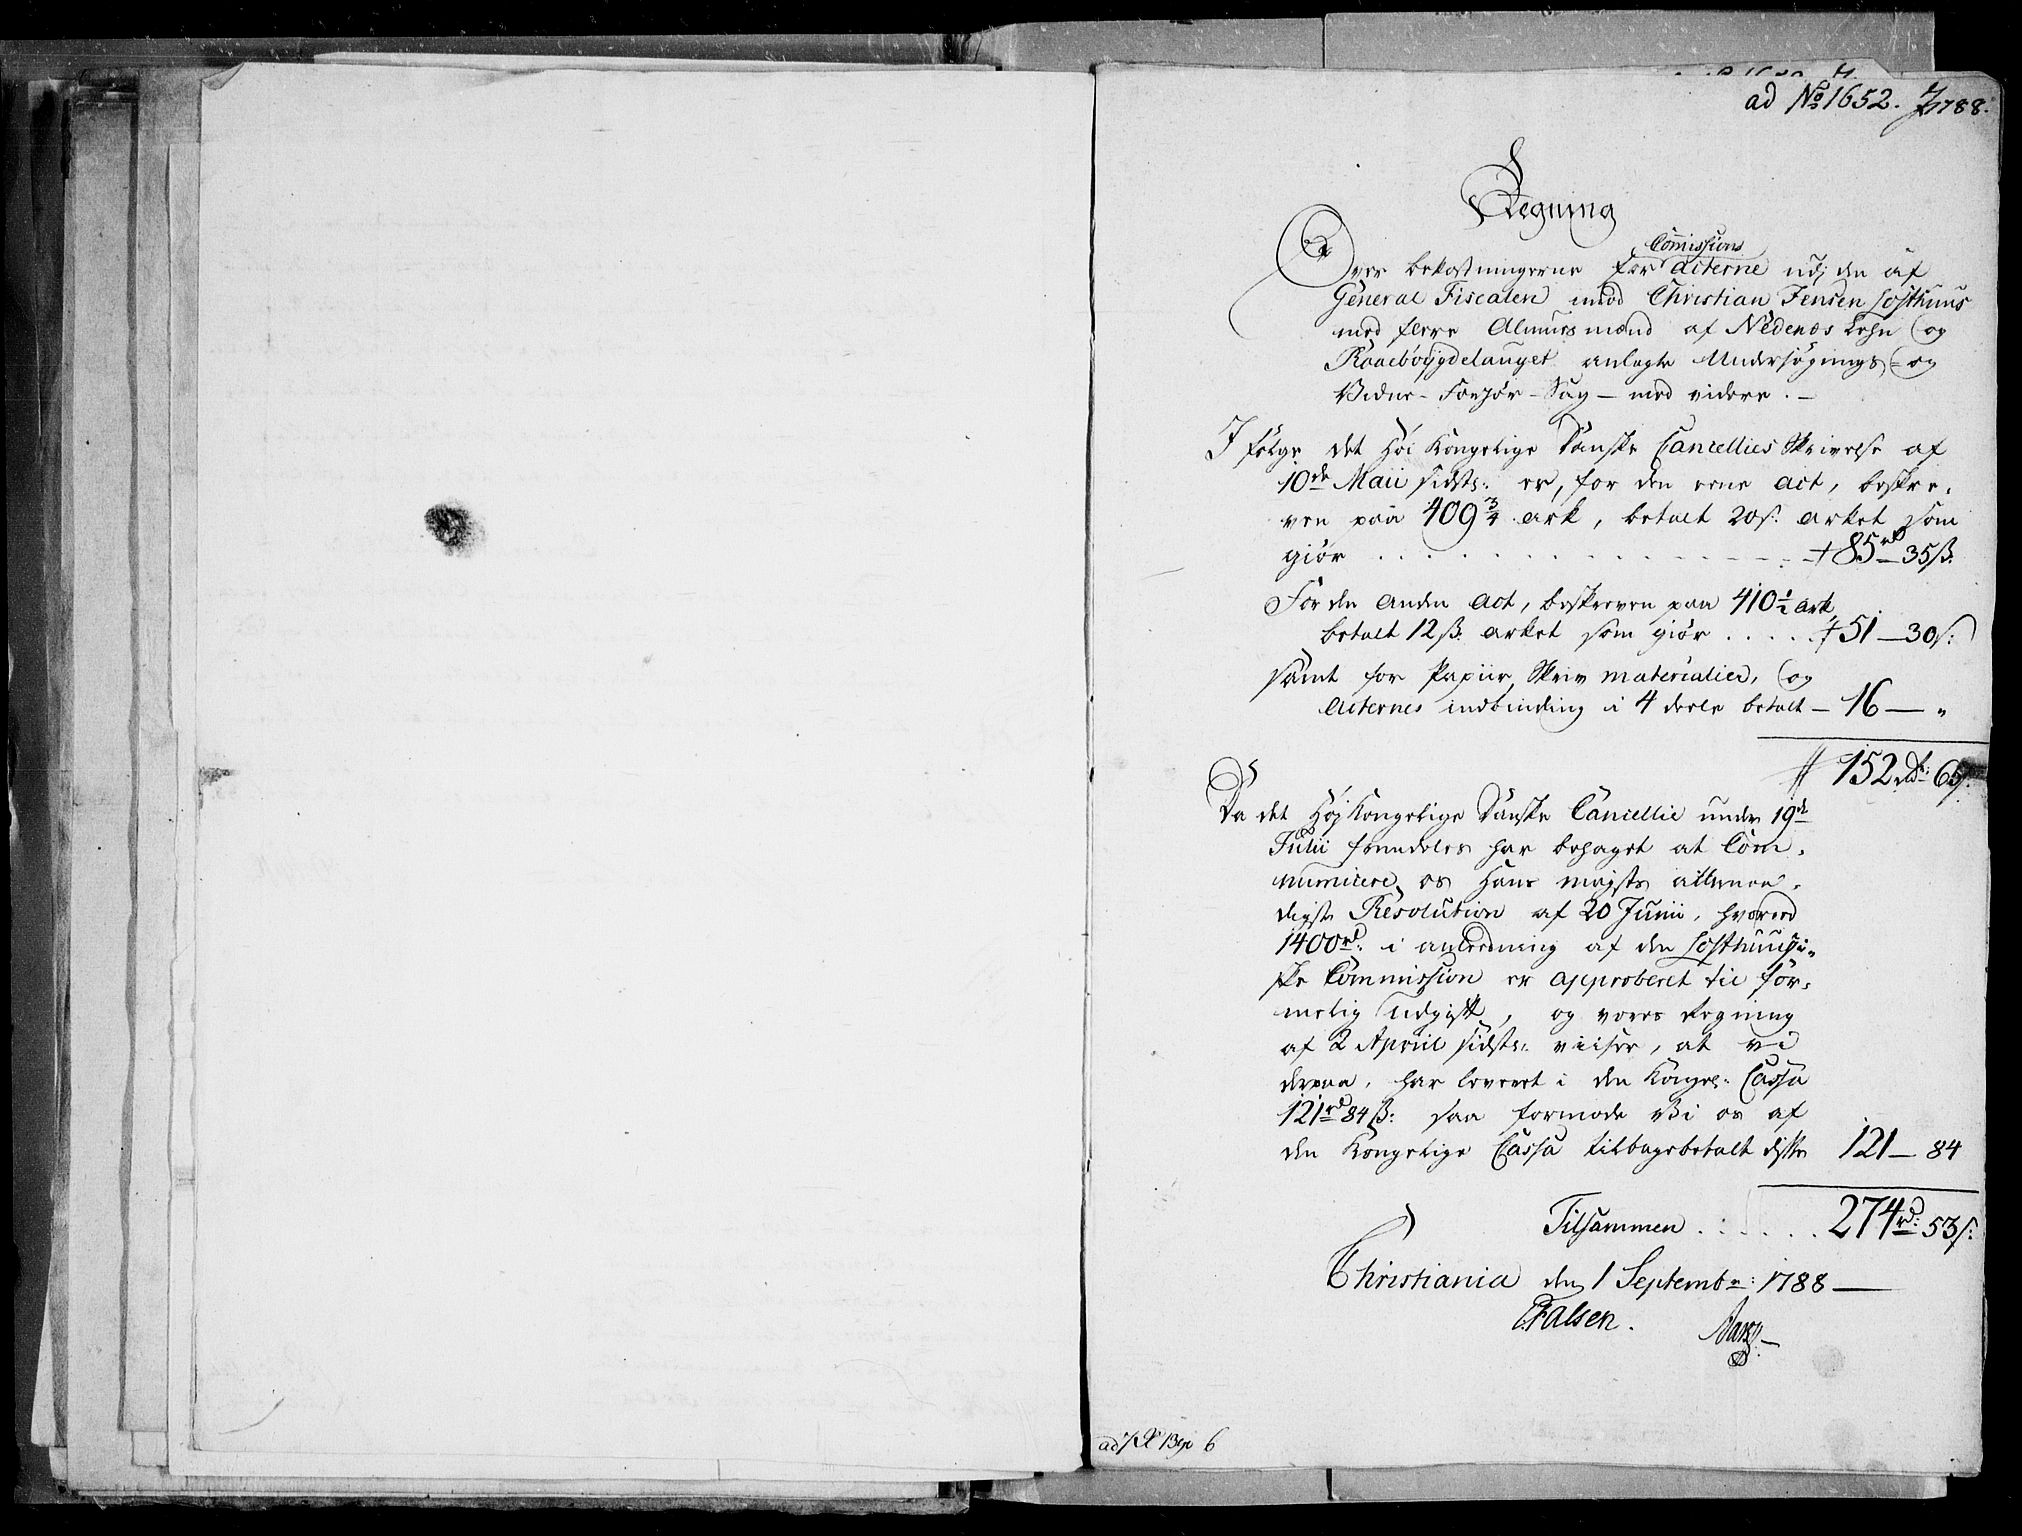 ad No 1652. 1788.
Regning
Over bekostningerne for Comissions Acterne udj den af
General Fiscalen imod Christian Jensen Losthuus
med flere Almues mænd af Nedenes Lehn og
Raaebøygdelauget anlagte Undersøgnings- og
Vidne-Forhør-Sag - med videre. -
I følge det Høi Kongelige Danske Cancellies Skrivelse af
10de Maii sidstl: er, for den eene Act, beskre-
ven paa 409 3/4 ark, betalt 20 s: arket som
giør . . . . . . . . . . 85 rd 35 ß.
For den anden Act, beskreven paa 410 1/2 ark,
betalt 12 ß. arket som giør . . . . 51 - 30 s:
samt for Papiir, Skriv materialier, og
Acternes indbinding i 4 deele betalt - 16 - "
152 Rd: 65 s.
Da det Høj Kongelige Danske Cancellie under 19de
Julii frendeles har behaget at Com-
municere os Hans Majsts allernaa-
digste Resolution af 20 Junii, hvorved
1400 rd: i anledning af den Losthuusi-
ske Commission er approberet til før-
melig udgift, og vores Regning
af 2 April sidstl: viiser, at vi
derpaa, har leveret i den Kongel: Cassa
121 rd 84 ß: saa formode Vi os af
den Kongelige Cassa tilbagebetalt disse 121 - 84
Tilsammen . : . . . . 274 rd: 53 s:
Christiania den 1 Septembr: 1788 -
E. Falsen.